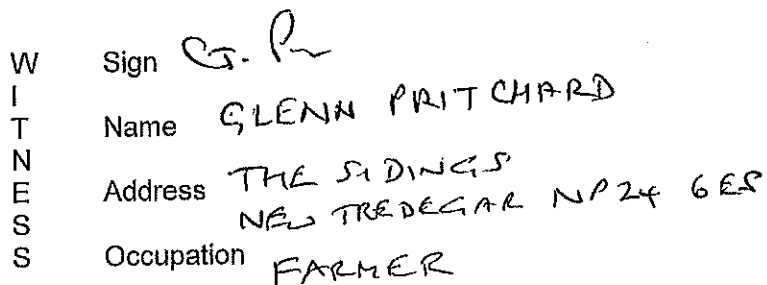 WITNESS
Sign G. P
Name GLENN PRITCHARD
Address THE SIDINGS
NEW TREDEGAR NP24 6ES
Occupation FARMER